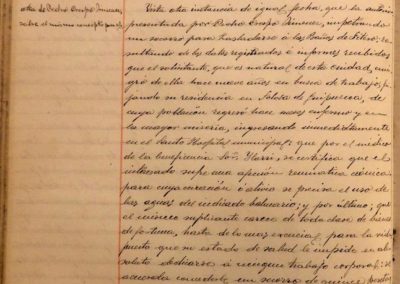 otra de Pedro Crespo Jimenez,
sobre el mismo concepto
Vista otra instancia de igual fecha, que la anterior
presentada por Pedro Crespo Jimenez, impetrando
un socorro para trasladarse á los Baños de Fitero: re-
sultando de los datos registrados é informes recibidos
que el solicitante, que es natural de esta ciudad, emi-
gró de ella hace nueve años en busca de trabajo, fi-
jando su residencia en Tolosa de Guipuzcoa, de
cuya poblacion regresó hace meses enfermo y en
la mayor miseria, ingresando inmediatamente
en el Santo Hospital municipal: que por el médico
de la beneficencia Sor. se certifica que el
interesado sufre una afeccion reumatica crónica
para cuya curacion ó alivio se precisa el uso de
las aguas del indicado balneario; y por último; que
el mísero suplicante carece de toda clase de bienes
de fortuna, hasta de lo mas esencial para la vida
puesto que su estado de salud le impide en ab-
soluto dedicarse á ningun trabajo corporal: se
acuerda concederle un socorro de quince pesetas